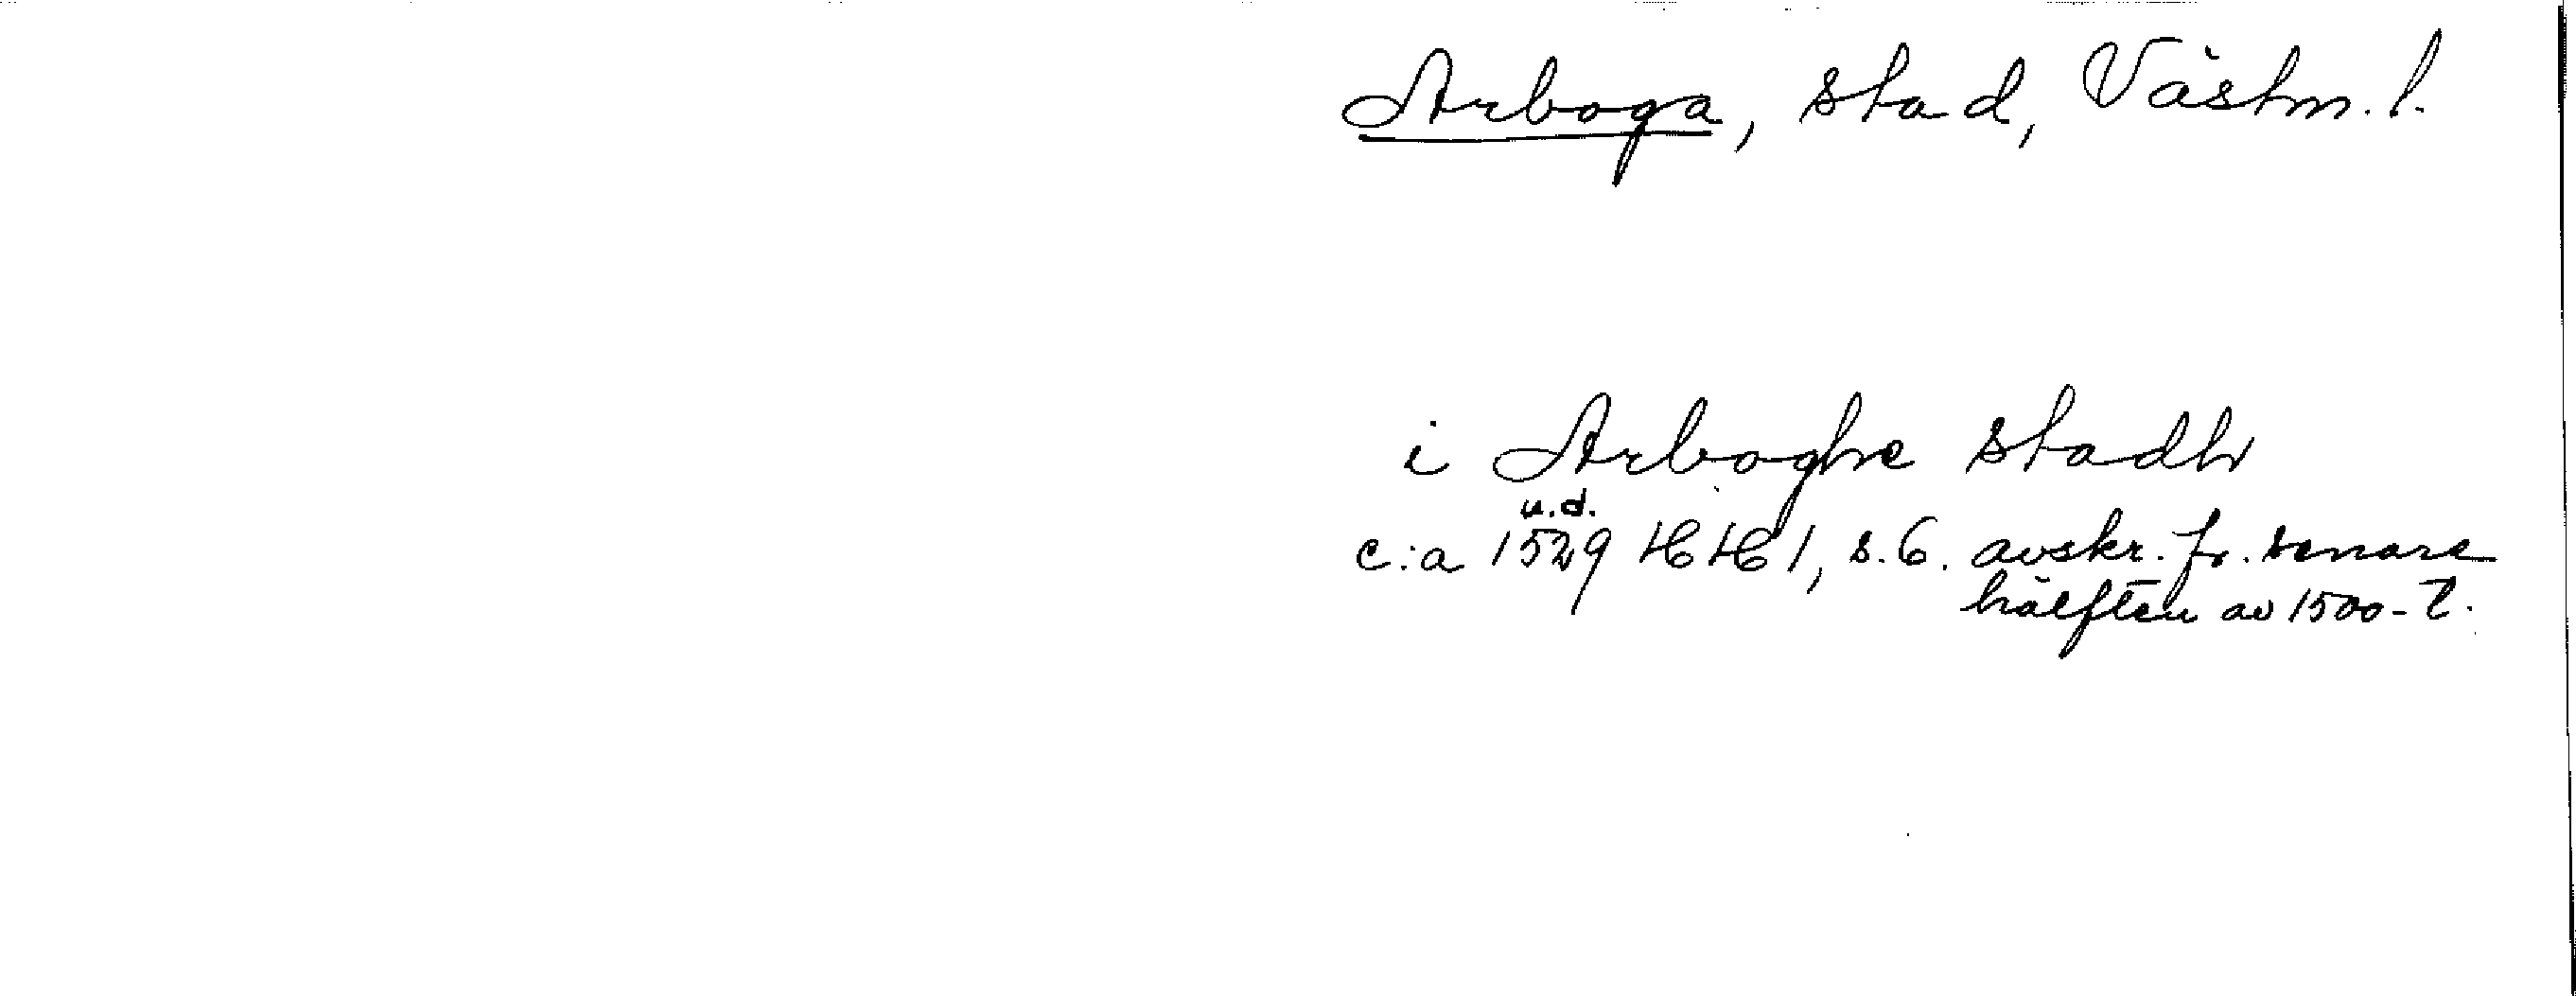 Arboga, stad, Västm. l.
i Arboghe stadh
u.d.
c:a 1529 HH 1, s. 6. avskr. fr. senare
hälften av 1500-t.